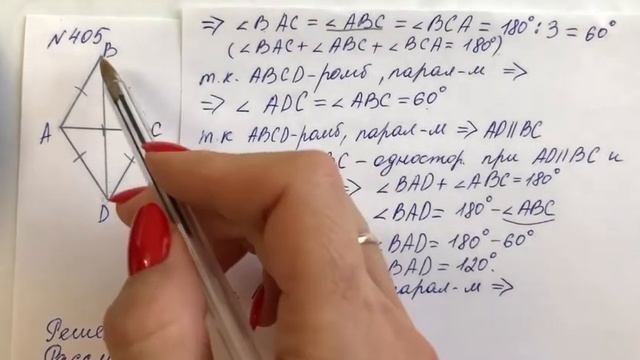 N405
B
A
C
D
⇒ ∠BAC = ∠ABC = ∠BCA = 180° : 3 = 60°
(∠BAC + ∠ABC + ∠BCA = 180°)
т.к. ABCD-ромб, парал-м ⇒
⇒ ∠ADC = ∠ABC = 60°
т.к ABCD-ромб, парал-м ⇒ AD∥BC
BC - одностор. при AD∥BC и
⇒ ∠BAD + ∠ABC = 180°
∠BAD = 180° - ∠ABC
BAD = 180° - 60°
BAD = 120°.
парал-м ⇒
Реше
Рассм